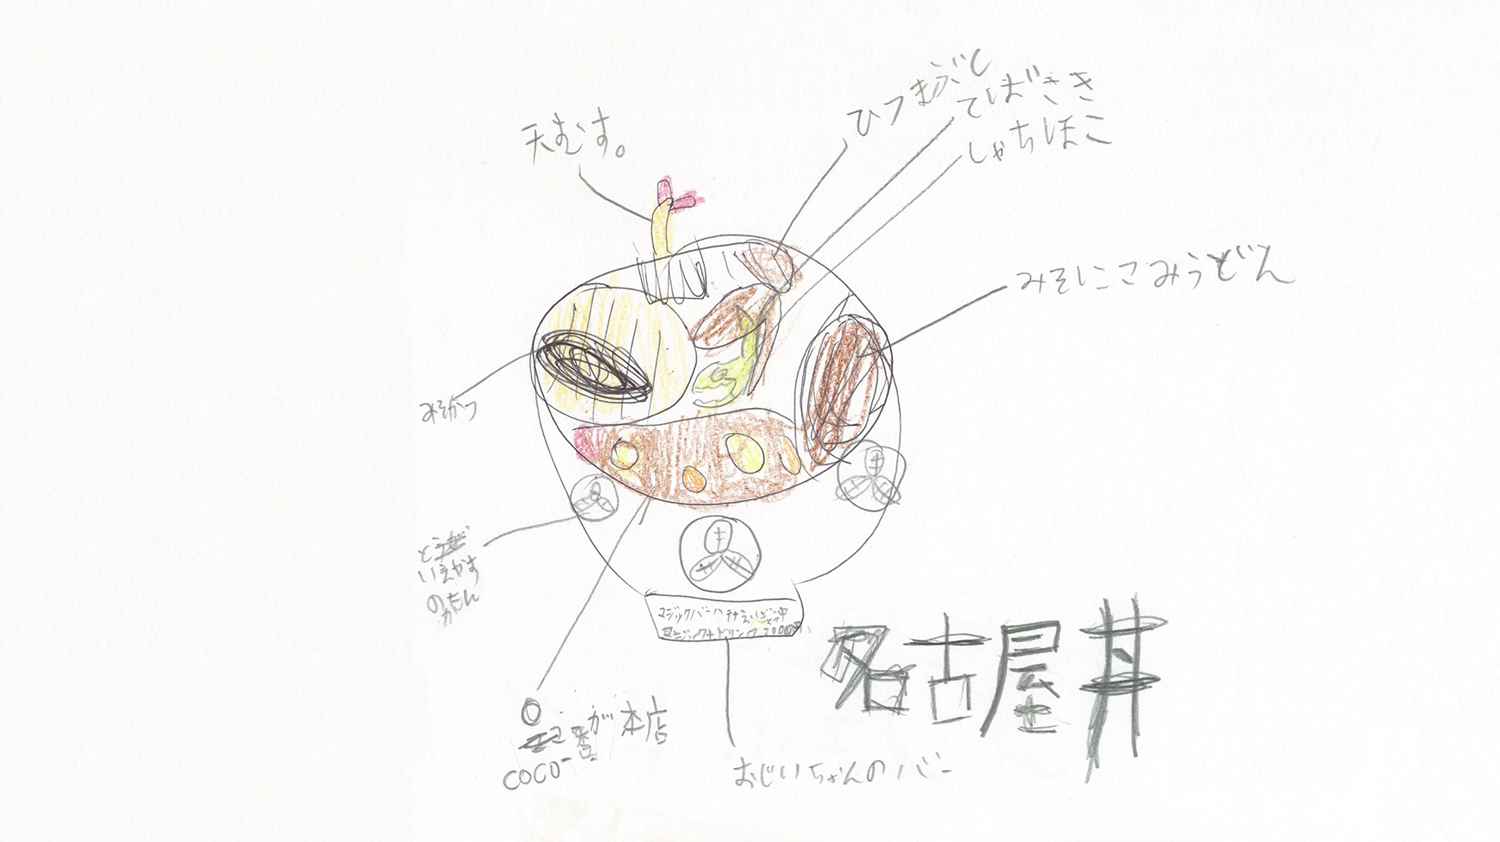 天むす。
ひつまぶし
てばさき
しゃちほこ
みそにこみうどん
みそかつ
とくがわ
いえやす
のかもん
が本店
COCO一番
おじいちゃんのバー
マジックバー
マジック+ドリンク
名古屋丼